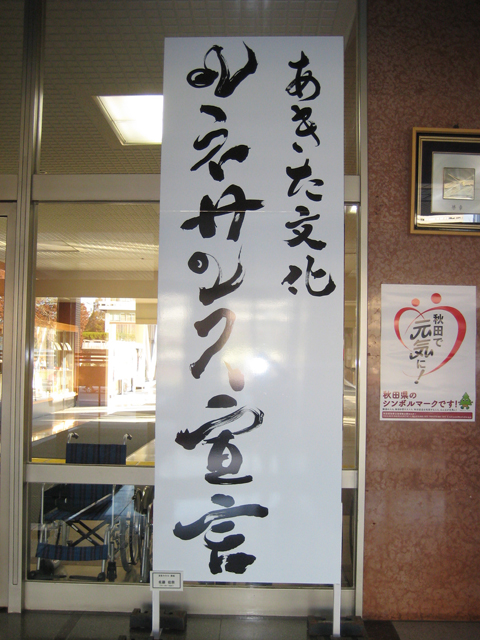 あきた文化
ルネサンス宣言
秋田で
元気に!
秋田県の
シンボルマークです!